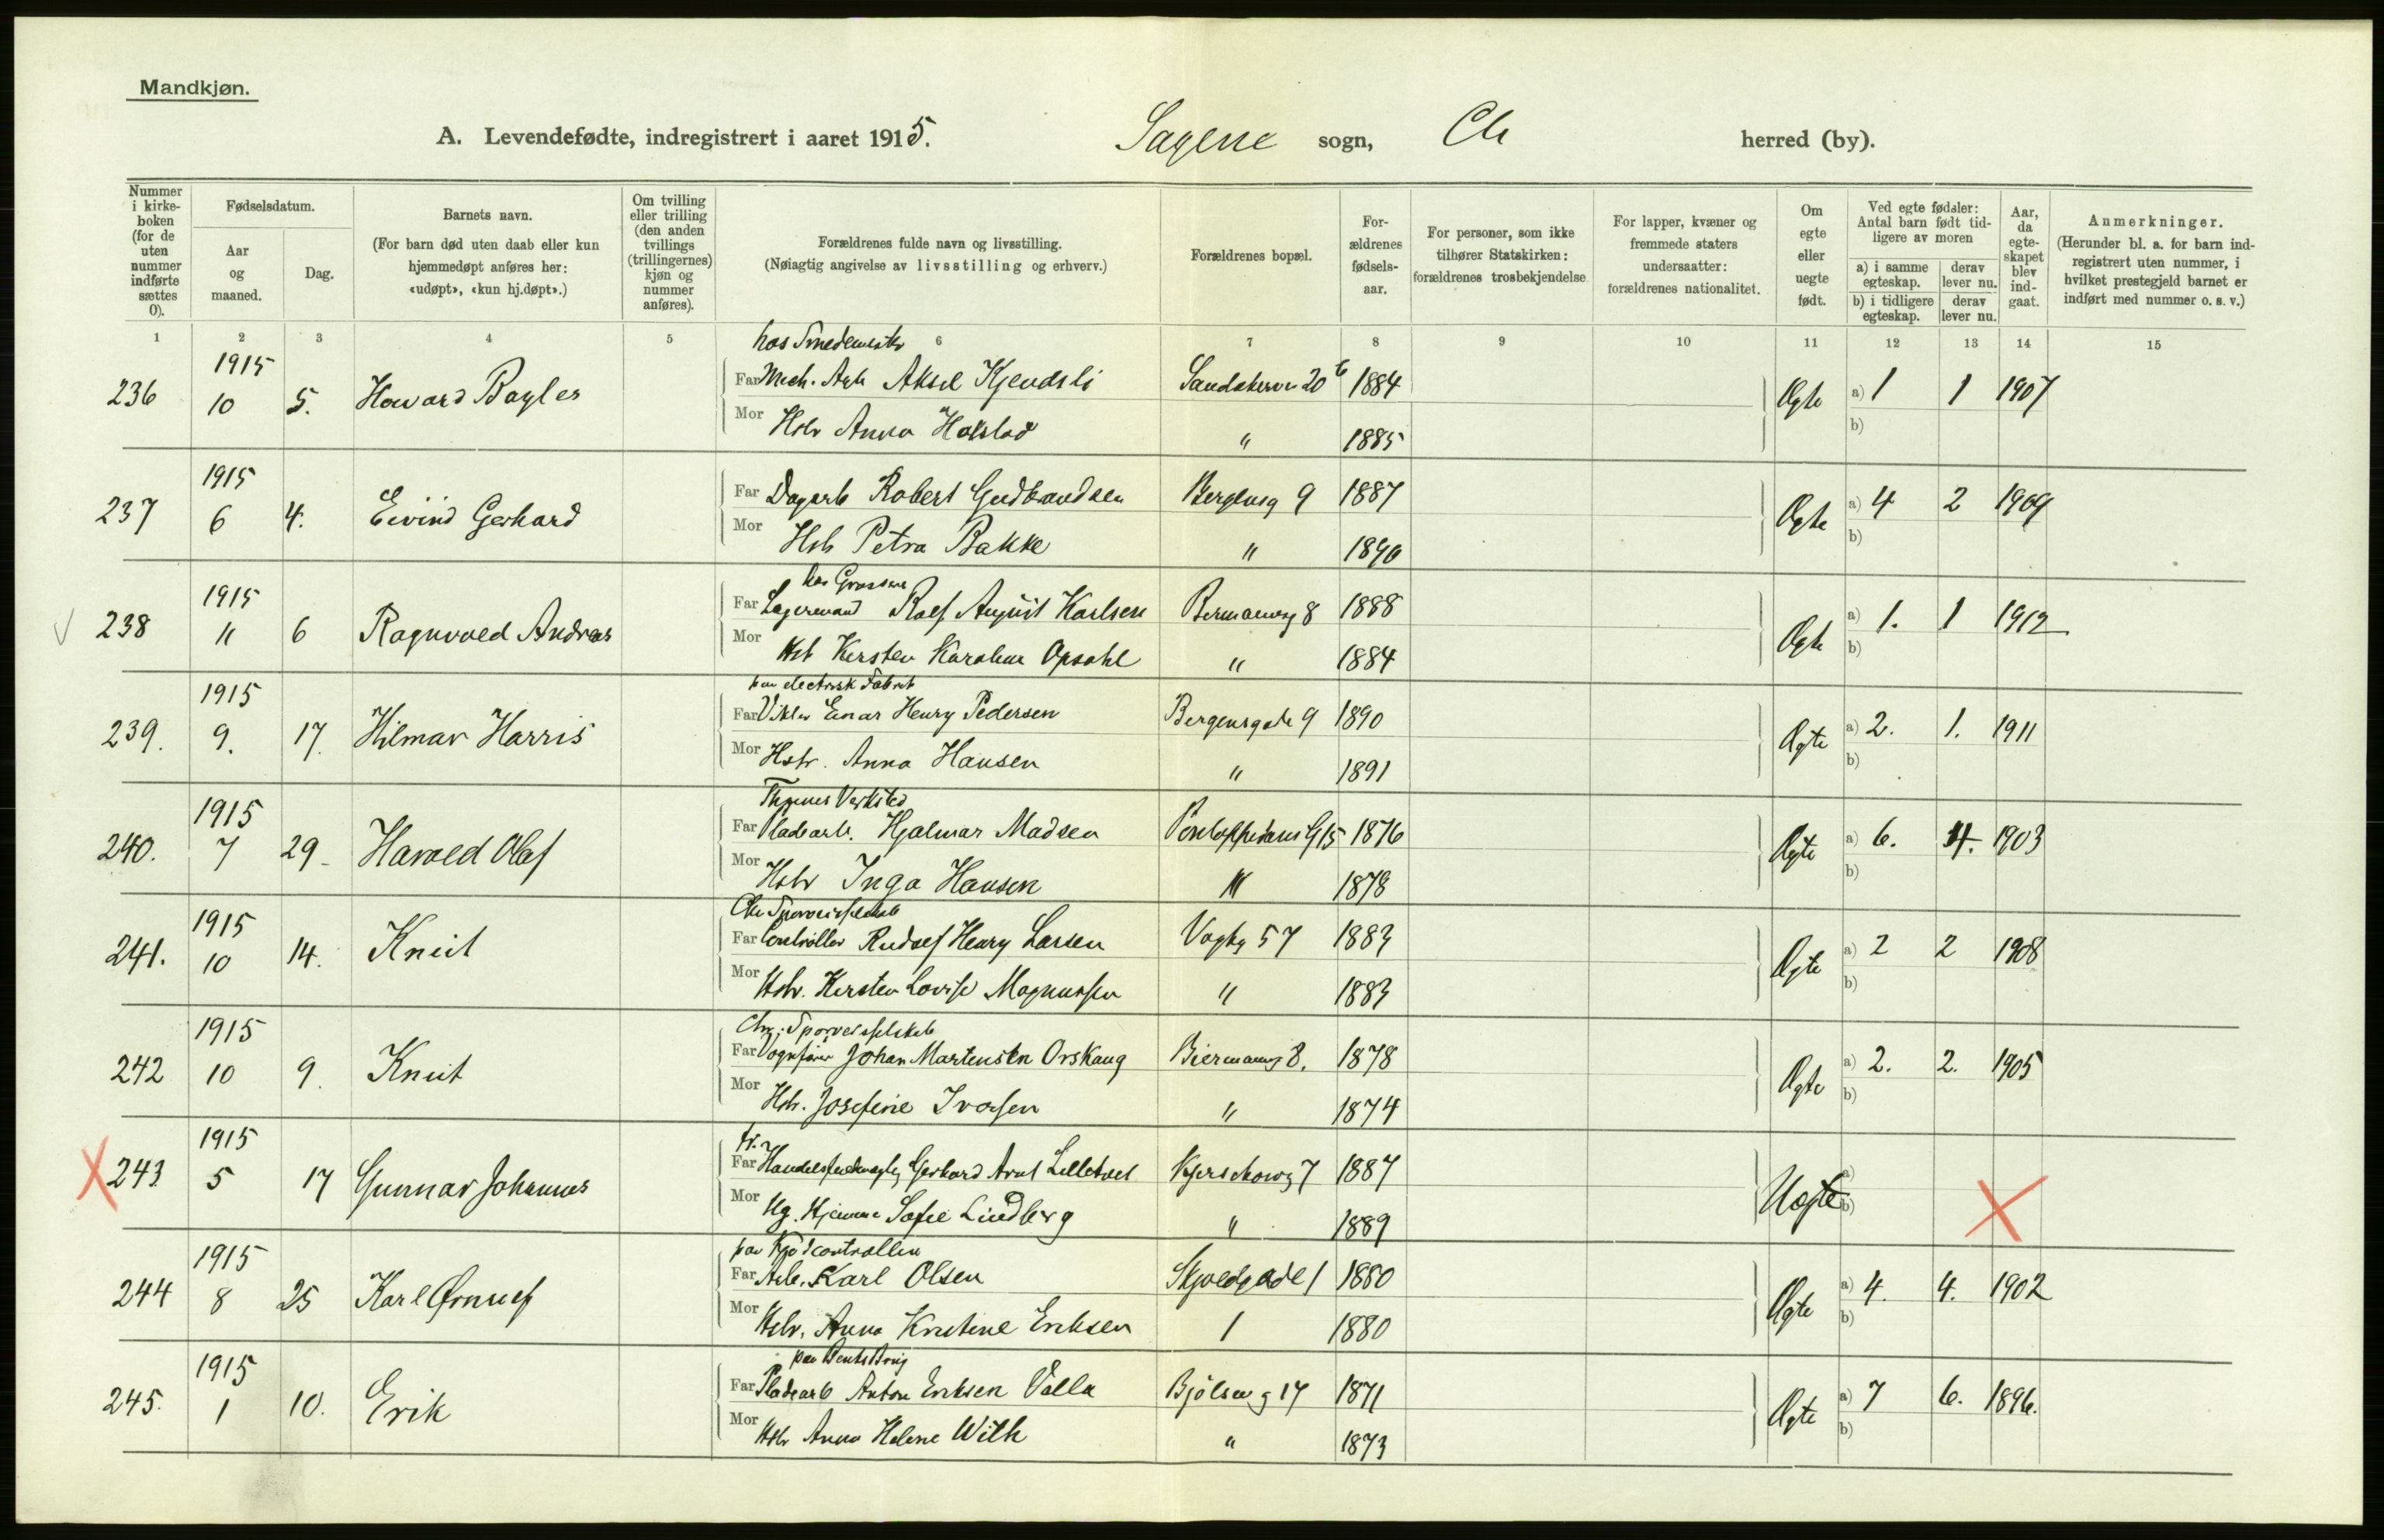 Mandkjøn.
A. Levendefødte, indregistrert i aaret 1915. Sagene sogn, Chr herred (by).
Nummer i kirkeboken (for de uten nummer indførte sættes 0).
Fødselsdatum.
Aar og maaned.
Dag.
Barnets navn.
(For barn død uten daab eller kun hjemmedøpt anføres her: «udøpt», «kun hj.døpt».)
Om tvilling eller trilling (den anden tvillings (trillingernes) kjøn og nummer anføres).
Forældrenes fulde navn og livsstilling.
(Nøiagtig angivelse av livsstilling og erhverv.)
Forældrenes bopæl.
Forældrenes fødselsaar.
For personer, som ikke tilhører Statskirken: forældrenes trosbekjendelse
For lapper, kvæner og fremmede staters undersaatter: forældrenes nationalitet.
Om egte eller uegte født.
Ved egte fødsler: Antal barn født tidligere av moren
a) i samme egteskap.
derav lever nu.
b) i tidligere egteskap.
derav lever nu.
Aar, da egteskapet blev indgaat.
Anmerkninger.
(Herunder bl. a. for barn indregistrert uten nummer, i hvilket prestegjeld barnet er indført med nummer o. s. v.)
1 2 3 4 5 6 7 8 9 10 11 12 13 14 15
hos Smedemester
236 1915 10 5. Howard Bayles Far Mech. Arb Aksel Kjendsli 20 b 1884 Ægte a) 1 1 1907
Mor Hstr Anna Halstad " 1885 b)
237 1915 6 4. Eivind Gerhard Far Dagarb Robert Gudbrandsen Bergensg 9 1887 Ægte a) 4 2 1909
Mor Hstr Petra Bakke " 1890 b)
238 1915 11 6 Ragnvald Andreas Far Lagermand Rolf August Karlsen Biermannsg 8 1888 Ægte a) 1. 1 1912
Mor Hst Kirsten Karoline Opsahl " 1884 b)
paa electrisk Fabrik
239. 1915 9. 17. Hilmar Harris Far Vikler Einar Henry Pedersen Bergensgade 9 1890 Ægte a) 2. 1. 1911
Mor Hstr. Anna Hansen " 1891 b)
Thunes Verksted
240. 1915 7 29- Harald Olaf Far Pladearb. Hjalmar Madsen 1876 Ægte a) 6. 4. 1903
Mor Hstr Inga Hansen " 1878 b)
Chr Sporveisselskab
241. 1915 10 14. Knut Far Controllør Rudolf Henry Larsen Vogtsg 57 1883 Ægte a) 2 2 1908
Mor Hstr. Kirsten Lovise Magnussen " 1883 b)
Chr. Sporveisselskab
242 1915 10 9. Knut Far Vognfører Johan Martensen Orskaug Biermannsg 8. 1878 Ægte a) 2. 2. 1905
Mor Hstr. Josefine Ivarsen " 1874 b)
243 1915 5 17 Gunnar Johannes Far Gerhard Arnt Lilletvet Kjerschowsg 7 1887 Uegte a) b)
Mor Ug. Hjemme Sofie Lindberg " 1889
paa Kjødcontrollen
244 1915 8 25 Karl Ørnulf Far Arb. Karl Olsen Skjoldgade 1 1880 Ægte a) 4. 4. 1902
Mor Hstr. Anna Kristine Eriksen 1 1880 b)
245. 1915 1 10. Erik Far Pladearb Anton Eriksen Valla Bjölseng 17 1871 Ægte a) 7 6. 1896.
Mor Hstr Anna Helene With " 1873 b)